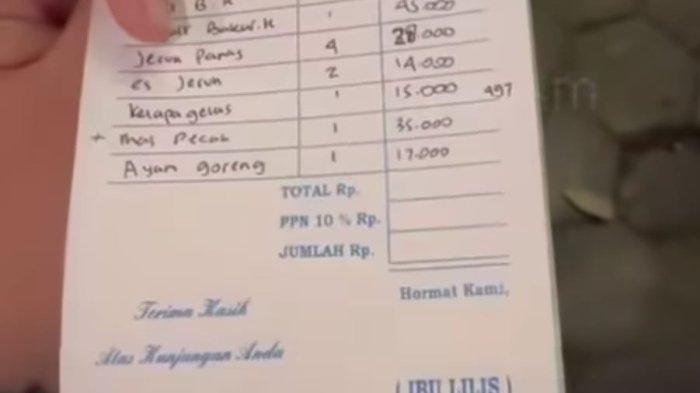 B. K 45.000
Bakar. K
Jeruk Panas 4 28.000
es Jeruk 2 14.000
Kelapa gelas 1 15.000 497
+ mas Pecak 1 35.000
Ayam goreng 1 17.000
TOTAL Rp.
PPN 10 % Rp.
JUMLAH Rp.
Hormat Kami,
Terima Kasih
Atas Kunjungan Anda
( IBU LILIS )